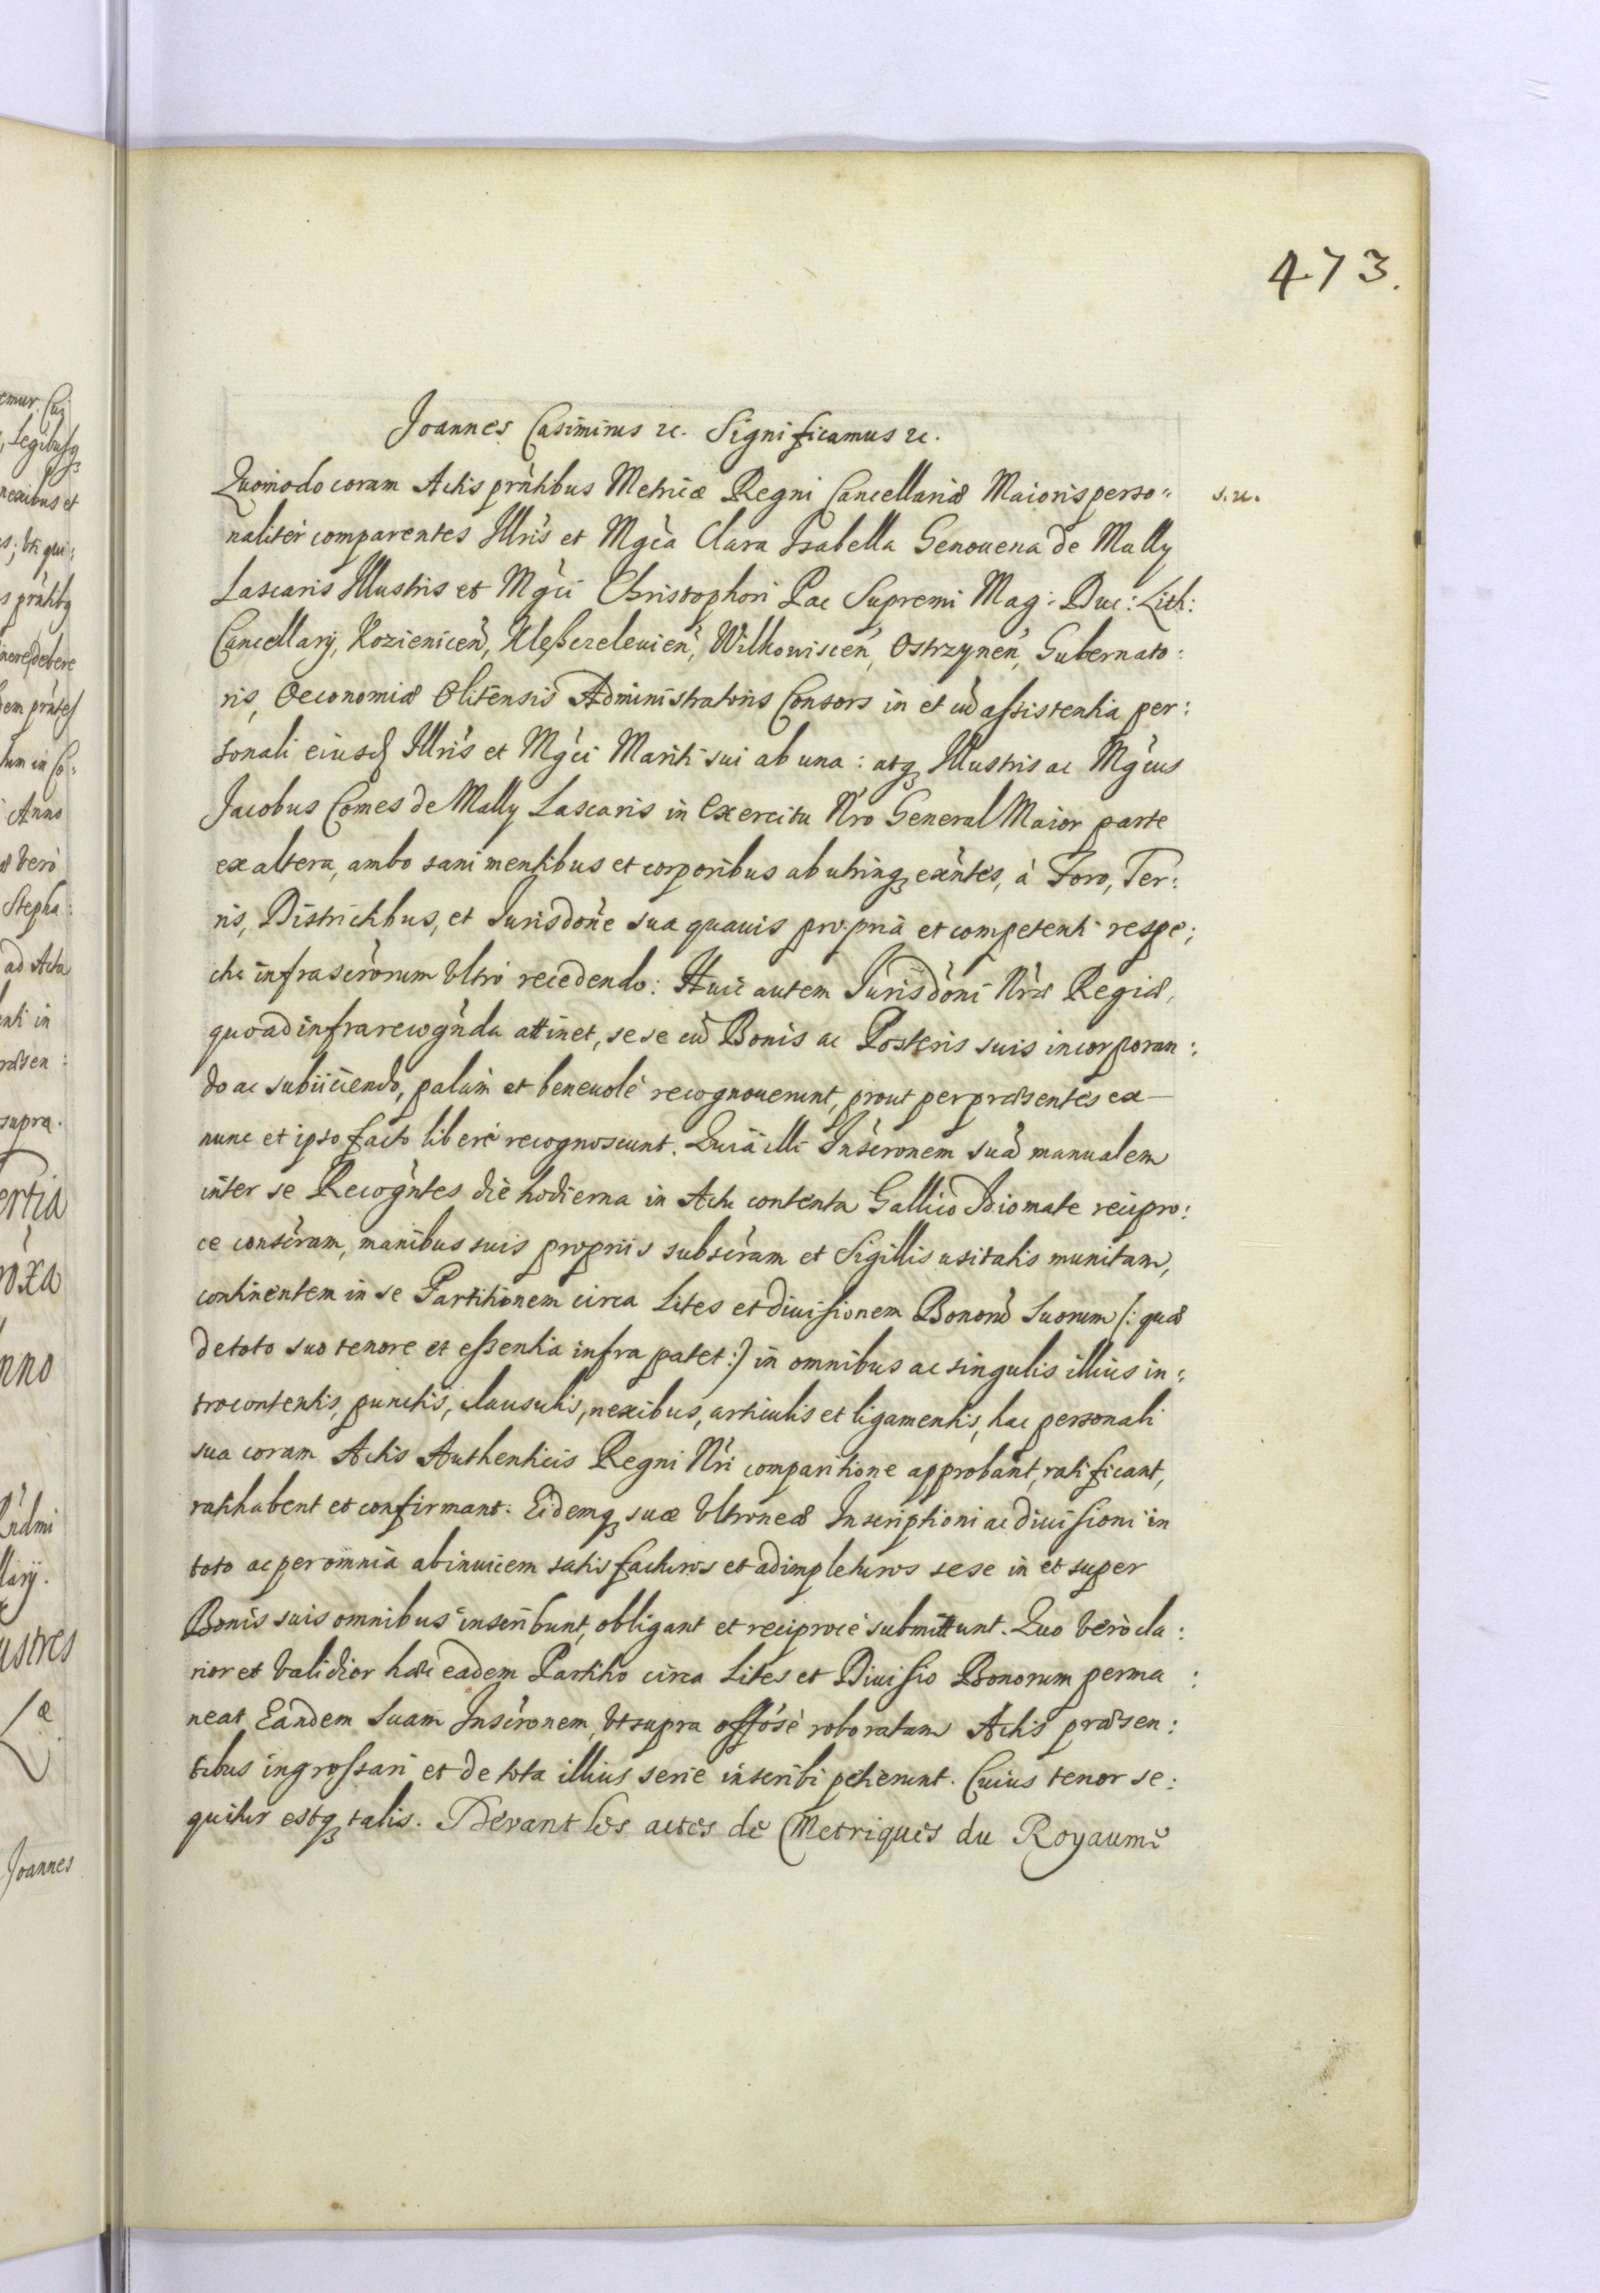 473.
Joannes Casimirus &c. Significamus &c.
Quomodo coram Actis prńtibus Metricæ Regni Cancellariæ Maioris perso= s. u.
naliter comparentes Illris et Mgca Clara Isabella Genouena de Mally
Lascaris Illustris et Mgci Christophori Pac Supremi Mag: Duc: Lith:
Cancellarij, Kozienicen, Kleszczelevien, Wilkowiscen, Ostrzynen, Gubernato:
ris, Oeconomiæ Olitensis Administratoris Consors in et cũ assistentia per:
sonali eiusd Illris et Mgci Mariti sui ab una: atq Illustris ac Mgcus
Jacobus Comes de Mally Lascaris in Exercitu Nro General Maior parte
ex altera, ambo sani mentibus et corporibus ab utrinq exntes, à Foro, Ter:
ris, Districtibus, et Jurisdone sua quauis propria et competenti respe:
ctu infrascrorum Vltro recedendo: Huic autem Jurisdoni Nræ Regiæ,
quoad infrarecognda attinet, sese cũ Bonis ac Posteris suis incorporan:
do ac subiiciendo, palam et beneuolè recognouerunt, prout per præsentes ex
nunc et ipso facto liberè recognoscunt. Quia illi Inscronem suã manualem
inter se Recogntes die hodierna in Actu contenta Gallico Idiomate recipro:
ce conscram, manibus suis propriis subscram et Sigillis usitatis munitam,
continentem in se Partitionem circa Lites et diuisionem Bonorũ suorum (: quæ
de toto suo tenore et essentia infra patet :) in omnibus ac singulis illius in:
trocontentis, punctis, clausulis, nexibus, articulis et ligamentis, hac personali
sua coram Actis Authenticis Regni Nri comparitione approbant, ratificant,
ratihabent et confirmant: Eidemq suæ Vltroneæ Inscriptioni ac diuisioni in
toto ac per omnia abinuicem satisfacturos et adimpleturos sese in et super
Bonis suis omnibus inscribunt, obligant et reciprocè submittunt. Quo verò cla:
rior et validior hæc eadem Partitio circa Lites et Diuisio Bonorum perma:
neat Eandem suam Inscronem, vt supra offosè roboratam Actis præsen:
tibus ingrossari et de tota illius serie inscribi petierunt. Cuius tenor se:
quitur estq talis. Devant les actes de Metriques du Royaume